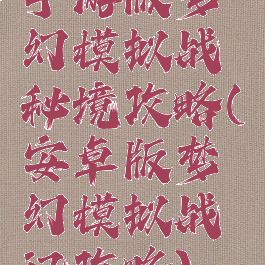 手游版梦
幻模拟战
秘境攻略(
安卓版梦
幻模拟战